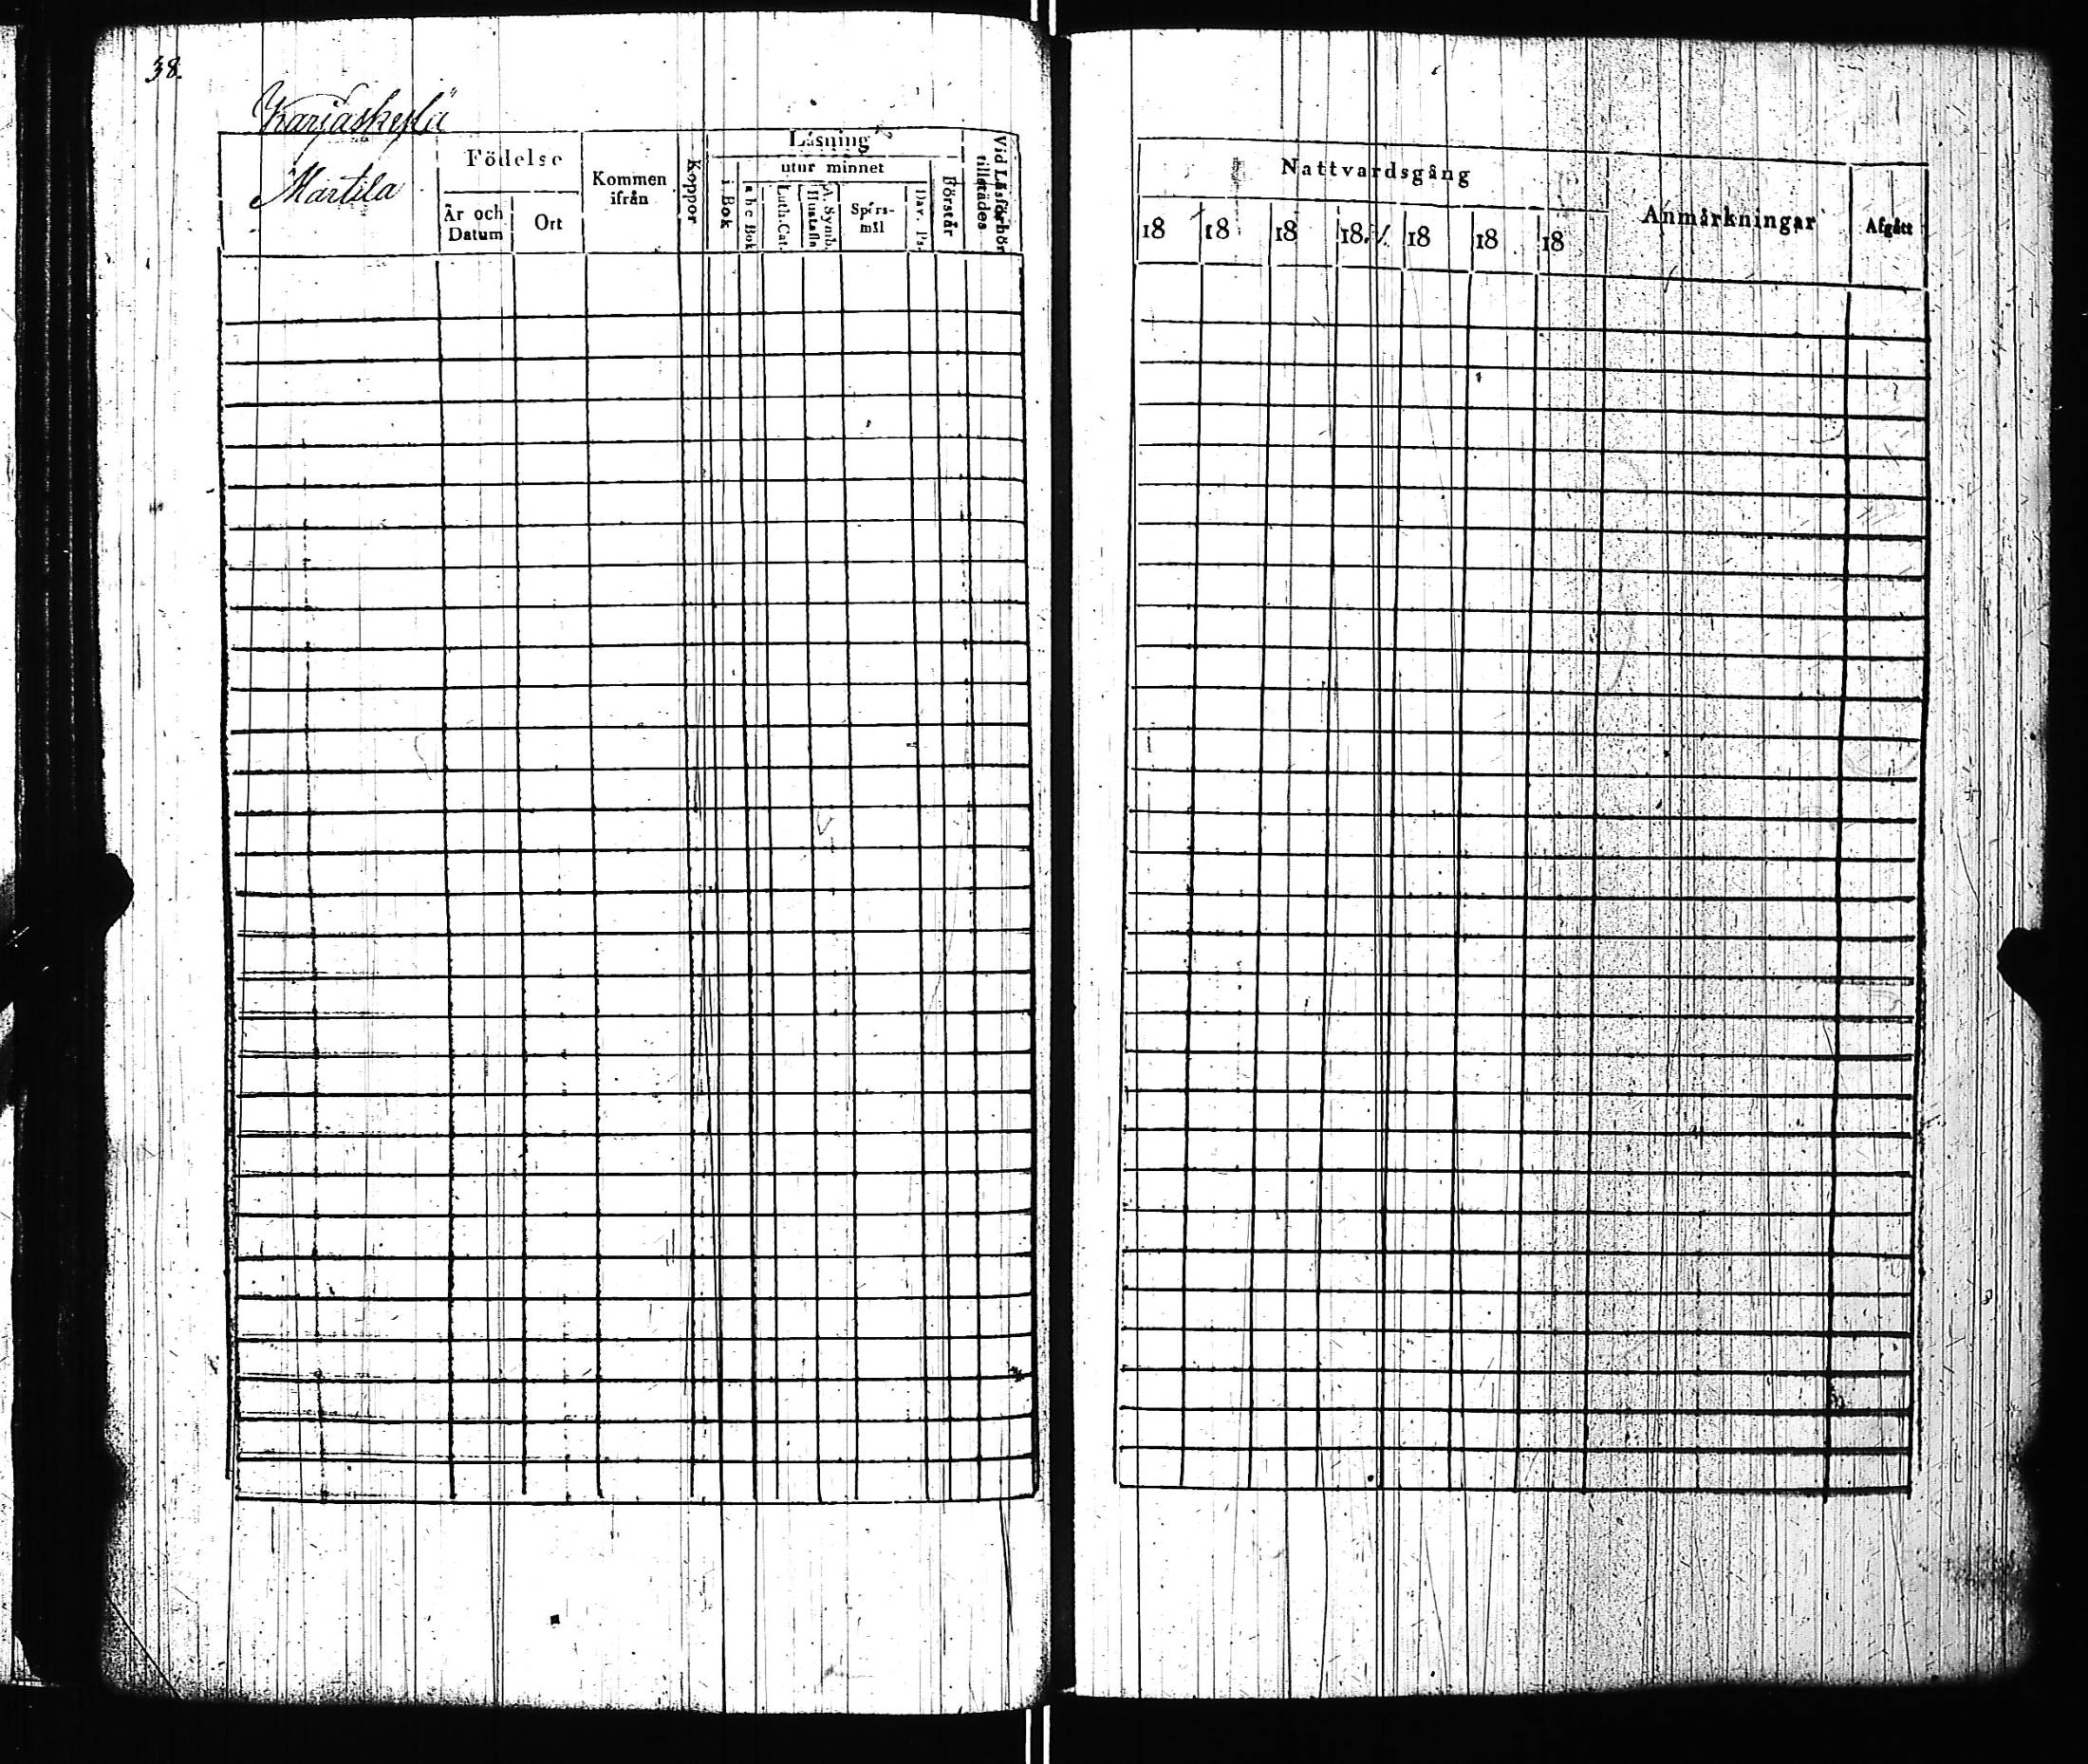 38.
Karjaskylä
Martila
Födelse
År och Datum
Ort
Kommen ifrån
Koppor
Läsning
utur minnet
i Bok
a b c Bok
Luth. Cat.
A. Symb. Hustafla
Spörs-mål
Dav. Ps.
Förstår
Vid Läsförhör tillstädes
Nattvardsgång
18 18 18 18 18 18 18
Anmärkningar
Afgått